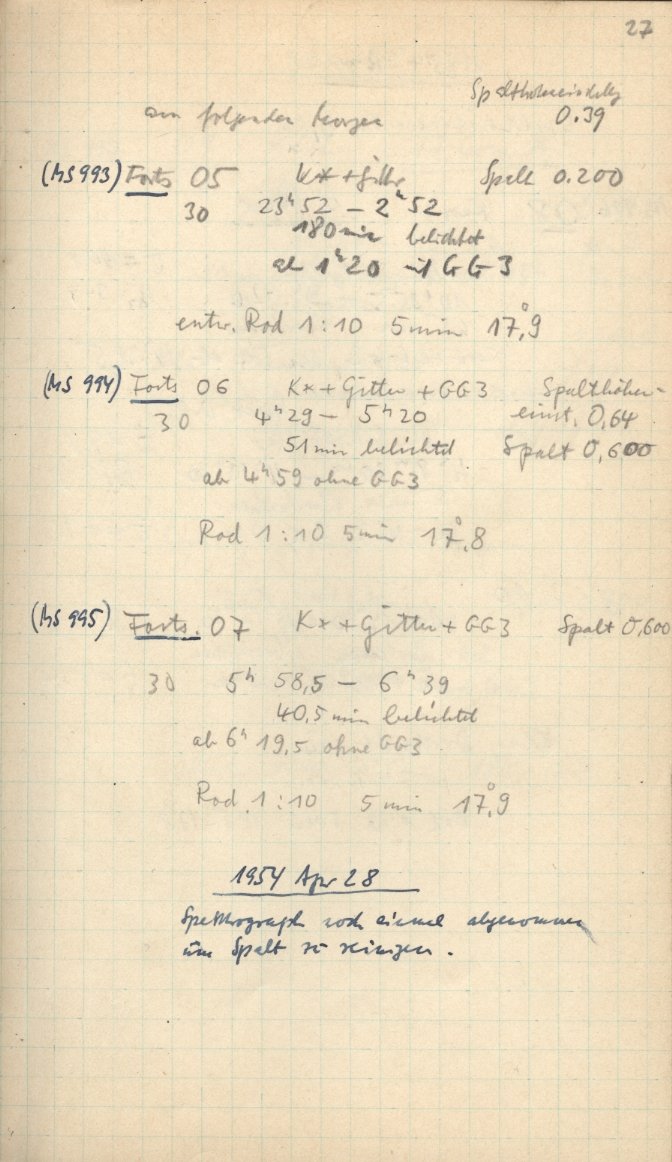 27
Spalthöheneinstellg
am folgenden Morgen 0.39
(MS 993) Forts 05 K* + Gitter Spalt 0.200
30 23ʰ52 – 2ʰ52
180 min belichtet
ab 1ʰ20 mit GG3
entw. Rod 1:10 5 min 17°,9
(MS 994) Forts 06 K* + Gitter + GG3 Spalthöhen-
30 4ʰ29 – 5ʰ20 einst. 0,64
51 min belichtet Spalt 0,600
ab 4ʰ59 ohne GG3
Rod 1:10 5 min 17°,8
(MS 995) Forts. 07 K* + Gitter + GG3 Spalt 0,600
30 5ʰ 58,5 – 6ʰ 39
40,5 min belichtet
ab 6ʰ 19,5 ohne GG3
Rod. 1:10 5 min 17°,9
1954 Apr 28
Spektrograph noch einmal abgenommen
um Spalt zu reinigen.